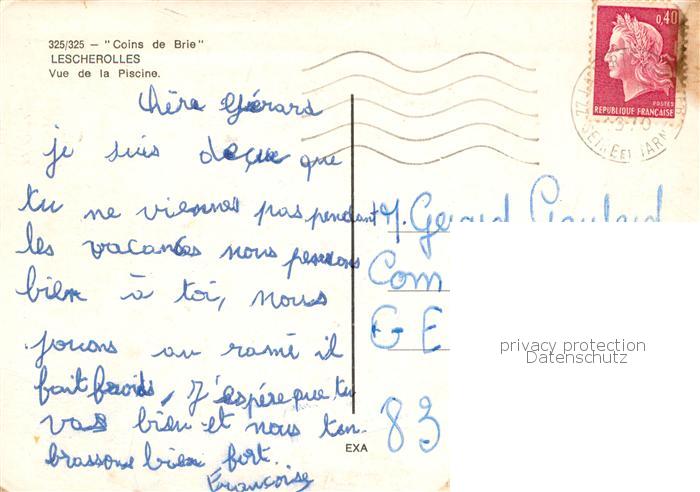 325/325 — "Coins de Brie"
LESCHEROLLES
Vue de la Piscine.
Chère Gérard
je suis deçue que
tu ne viennes pas pendant
les vacances nous pensons
bien à toi, nous
jouons au rami il
fait froids, J'espère que tu
vas bien et nous t'em-
brassons bien fort.
Françoise
EXA
0,40
POSTES
REPUBLIQUE FRANÇAISE
77
SEINE ET MARNE
M. Gerard
Com
G E
83
privacy protection
Datenschutz